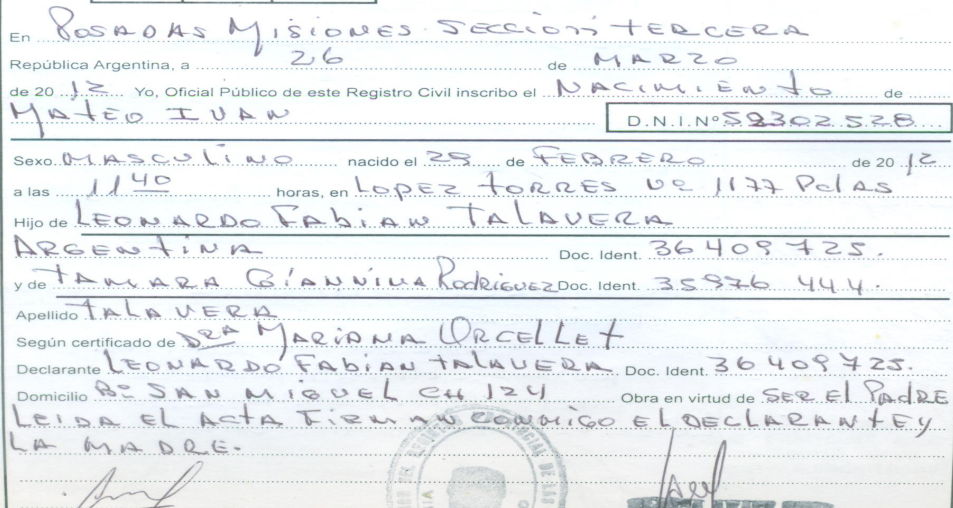 En POSADAS MISIONES. SECCION TERCERA
República Argentina, a 26 de MARZO
de 20 12 Yo, Oficial Público de este Registro Civil inscribo el NACIMIENTO de
MATEO IVAN D.N.I.Nº 52302528
Sexo MASCULINO nacido el 29 de FEBRERO de 20 12
a las 11 40 horas, en LOPEZ TORRES Nº 1177 Pdas
Hijo de LEONARDO FABIAN TALAVERA
ARGENTINA Doc. Ident. 36409725.
y de TAMARA GIANNINA RODRIGUEZ Doc. Ident. 35976 444.
Apellido TALAVERA
Según certificado de DRA MARIANA ORCELLET
Declarante LEONARDO FABIAN TALAVERA Doc. Ident. 36409725.
Domicilio Bº SAN MIGUEL CH 124 Obra en virtud de SER El PADRE
LEIDA EL ACTA FIRMAN CONMIGO EL DECLARANTE Y
LA MADRE.